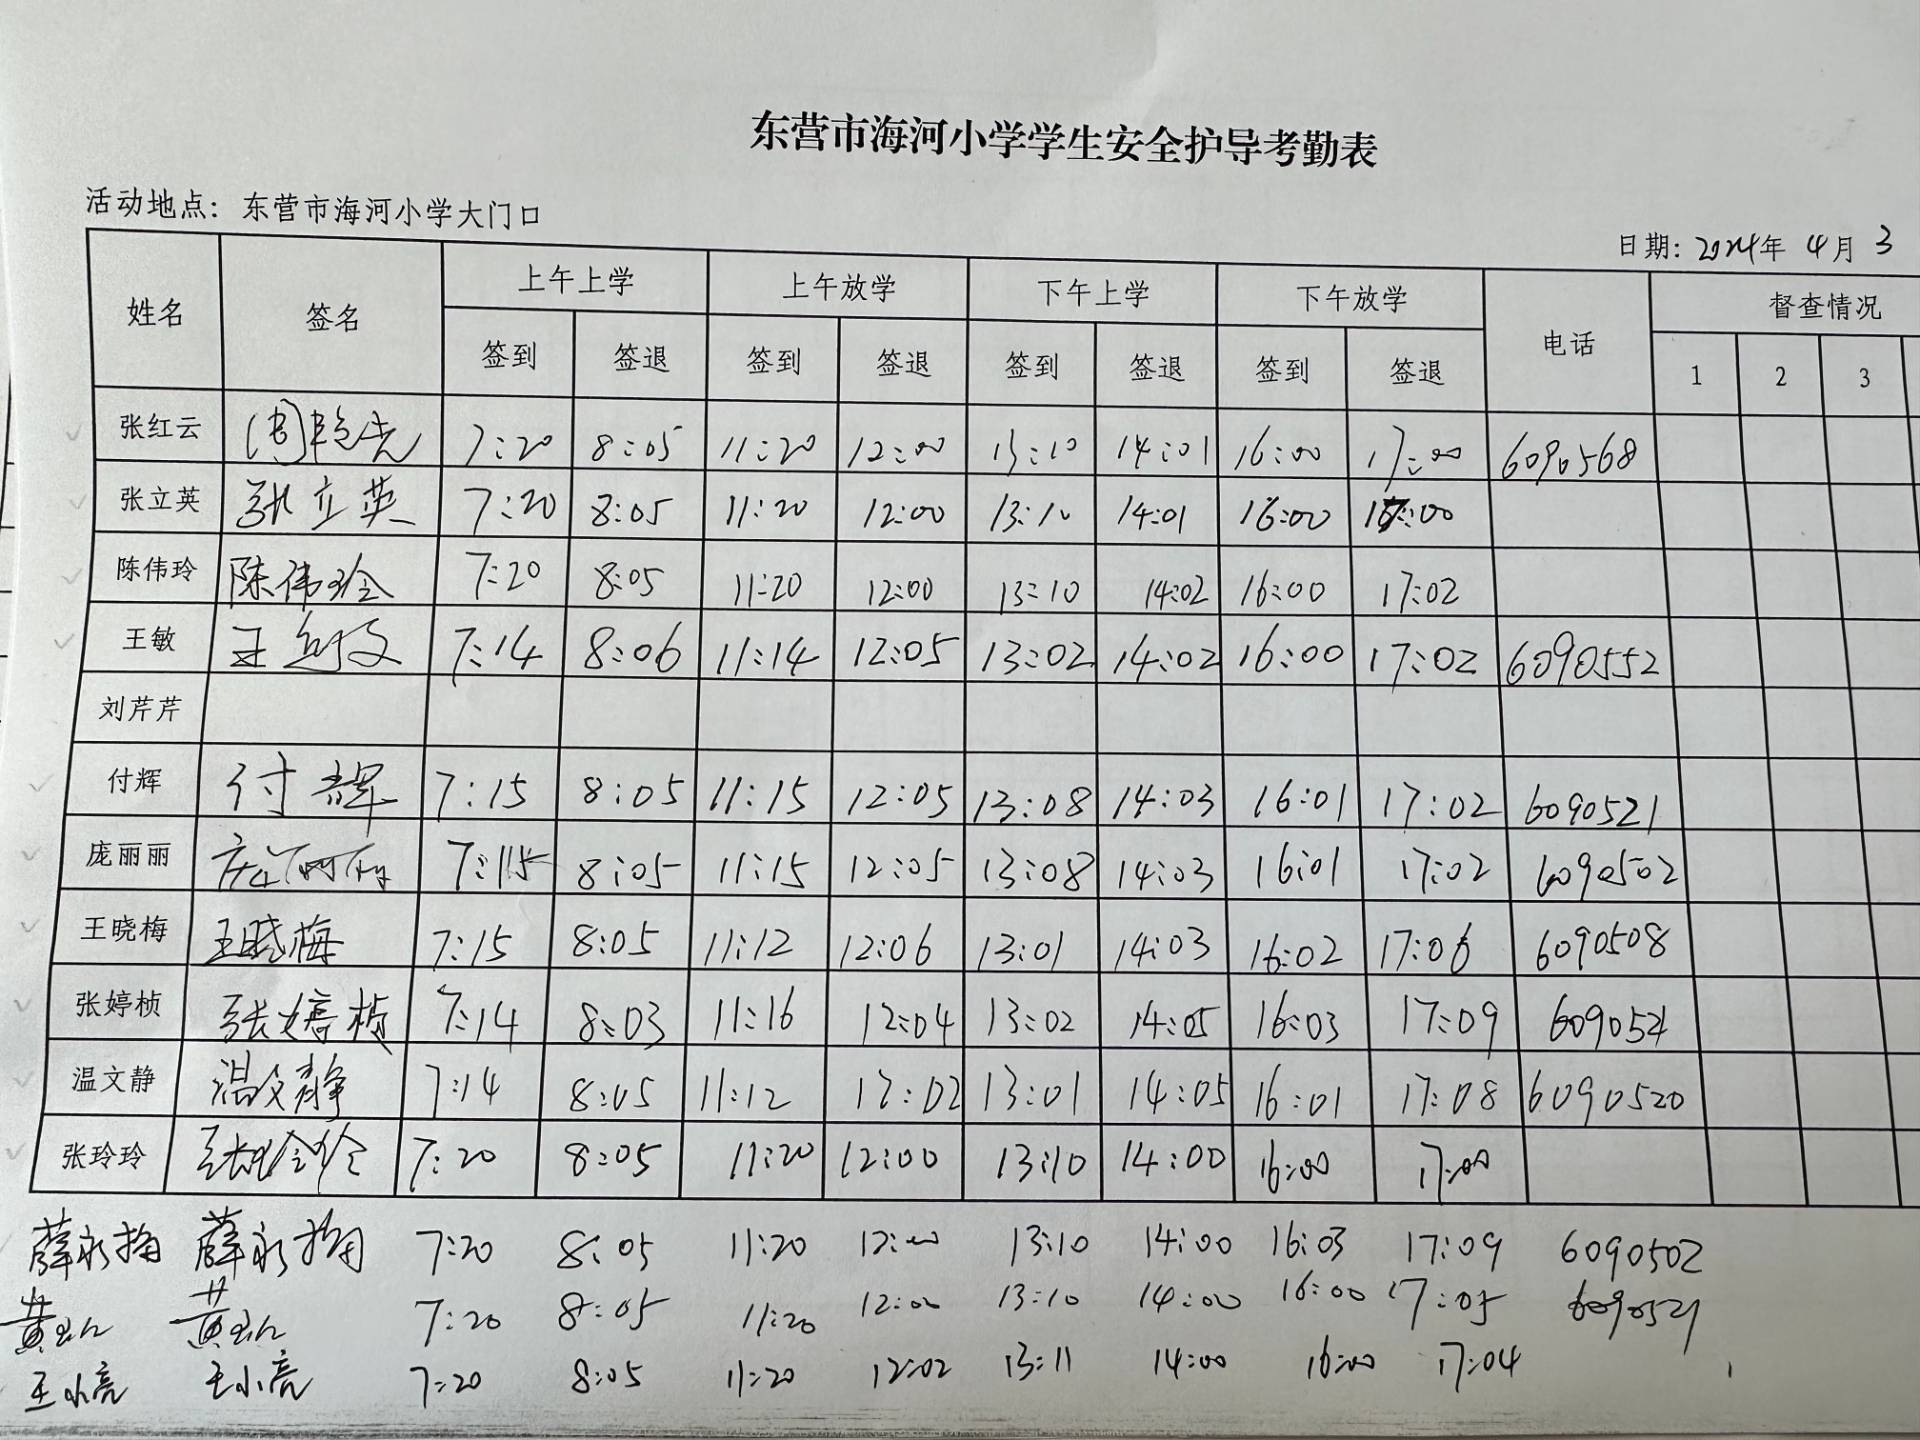 东营市海河小学学生安全护导考勤表
活动地点：东营市海河小学大门口
日期: 2024年 4月 3
姓名 签名 上午上学 上午放学 下午上学 下午放学 电话 督查情况
签到 签退 签到 签退 签到 签退 签到 签退 1 2 3
张红云 7:20 8:05 11:20 12:00 13:10 14:01 16:00 17:00 6090568
张立英 张立英 7:20 8:05 11:20 12:00 13:10 14:01 16:00 17:00
陈伟玲 陈伟玲 7:20 8:05 11:20 12:00 13:10 14:02 16:00 17:02
王敏 王敏 7:14 8:06 11:14 12:05 13:02 14:02 16:00 17:02 6090552
刘芹芹
付辉 付辉 7:15 8:05 11:15 12:05 13:08 14:03 16:01 17:02 6090521
庞丽丽 庞丽丽 7:15 8:05 11:15 12:05 13:08 14:03 16:01 17:02 6090502
王晓梅 王晓梅 7:15 8:05 11:12 12:06 13:01 14:03 16:02 17:06 6090508
张婷桢 张婷桢 7:14 8:03 11:16 12:04 13:02 14:05 16:03 17:09 609052
温文静 温文静 7:14 8:05 11:12 12:02 13:01 14:05 16:01 17:08 6090520
张玲玲 张玲玲 7:20 8:05 11:20 12:00 13:10 14:00 16:00 17:00
薛永梅 薛永梅 7:20 8:05 11:20 12:00 13:10 14:00 16:03 17:09 6090502
7:20 8:05 11:20 12:00 13:10 14:00 16:00 17:05 6090521
王小亮 王小亮 7:20 8:05 11:20 12:02 13:11 14:00 16:00 17:04